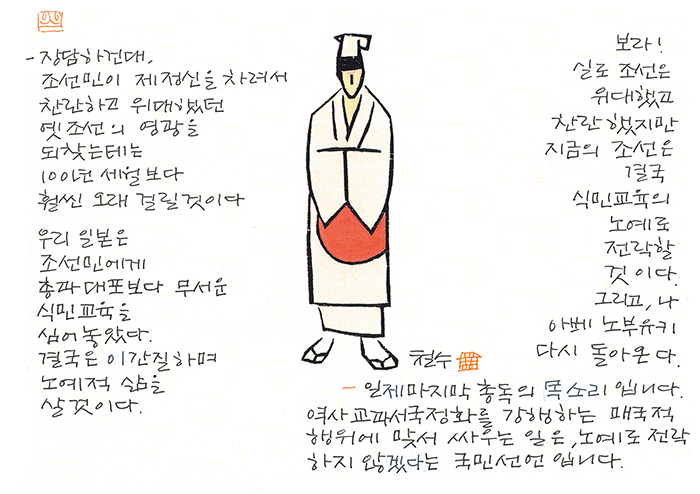 - 장담하건대,
조선민이 제정신을 차려서
찬란하고 위대했던
옛조선의 영광을
되찾는데는
100년 세월보다
훨씬 오래 걸릴것이다
우리 일본은
조선민에게
총과 대포보다 무서운
식민교육을
심어놓았다.
결국은 이간질하며
노예적 삶을
살것이다.
보라!
실로 조선은
위대했고
찬란했지만
지금의 조선은
결국
식민교육의
노예로
전락할
것이다.
그리고, 나
아베 노부유키
다시 돌아온다.
철수
- 일제마지막 총독의 똑소리 입니다.
역사교과서국정화를 강행하는 매국적
행위에 맞서 싸우는 일은, 노예로 전락
하지 않겠다는 국민선언 입니다.